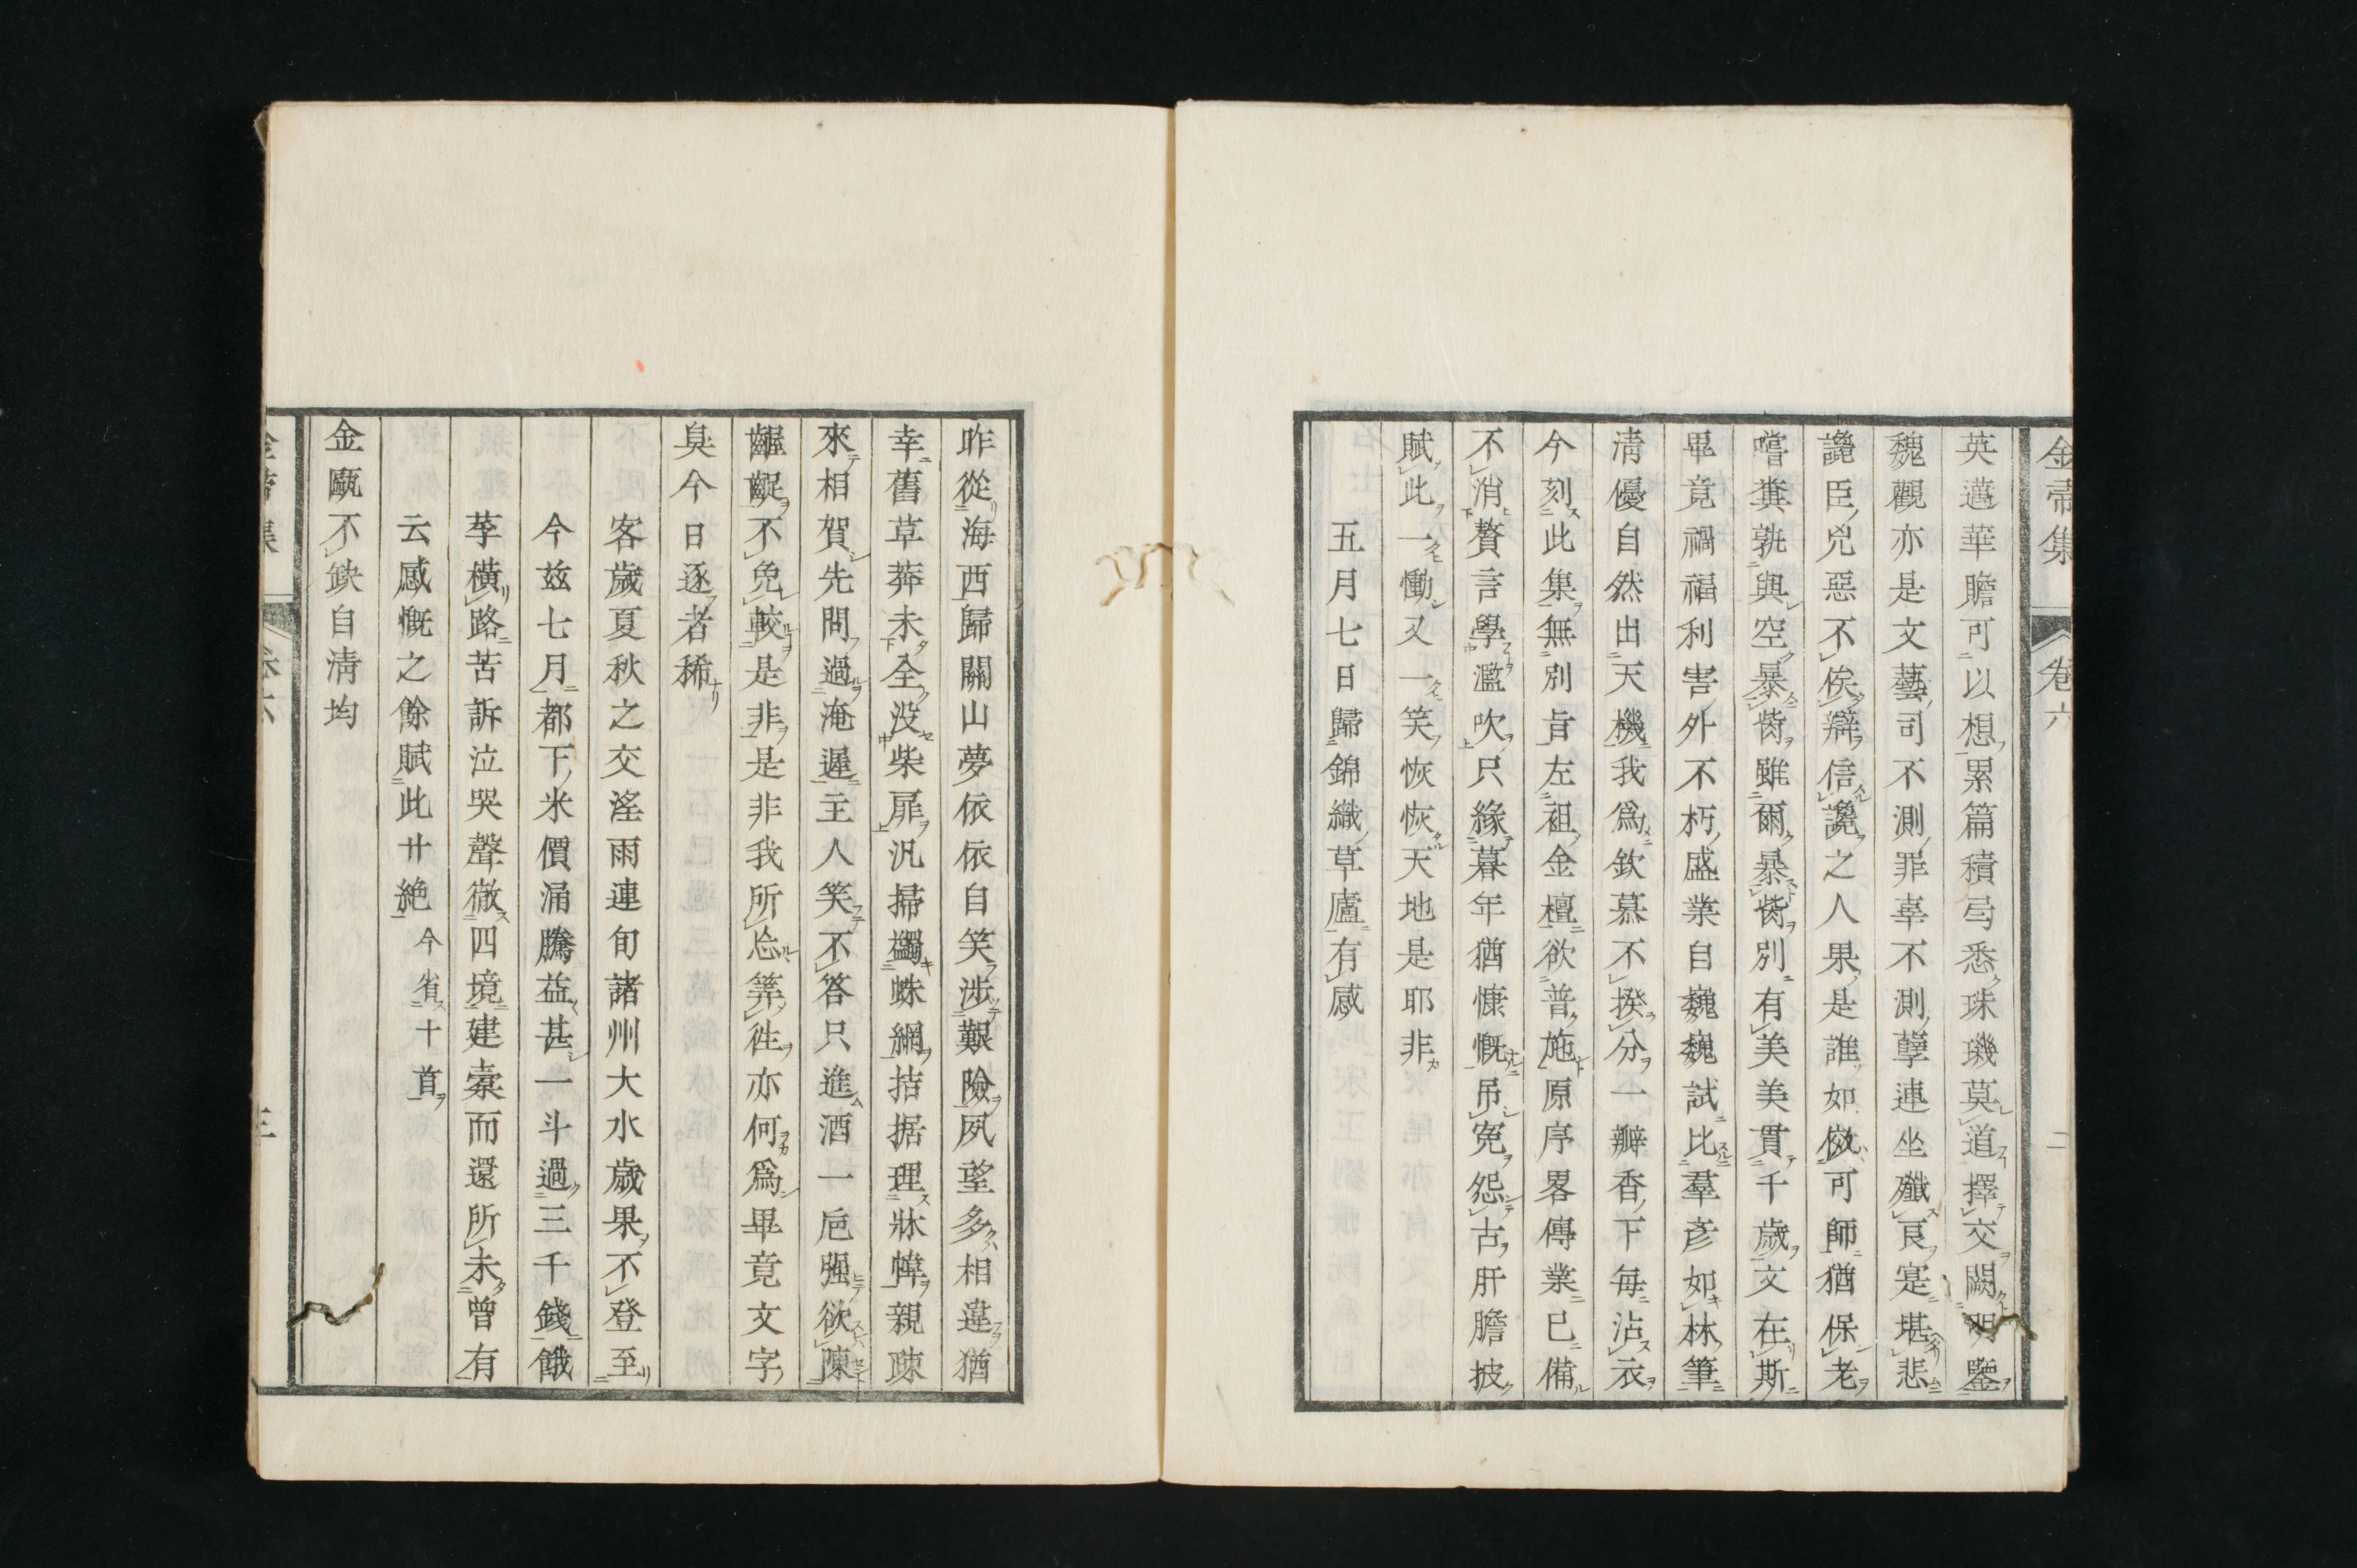 金帚集 卷六 二
英邁華贍可以想累篇積号悉珠璣莫道擇交闕明鑒
魏觀亦是文藝司不測罪辜不測孽連坐殲良寔堪悲
讒臣兇惡不俟辯信讒之人果是誰如傚可師猶保老
嘗糞孰與空暴胔雖爾暴胔別有美美貫千歲文在斯
畢竟禍福利害外不朽盛業自巍巍試比羣彥如林筆
淸優自然出天機我爲欽慕不揆分一瓣香下每沾衣
今刻此集無別旨左袒金檀欲普施原序畧傳業已備
不消贅言學濫吹只緣暮年猶慷慨吊寃怨古肝膽披
賦此一慟又一笑恢恢天地是耶非
五月七日歸錦織草廬有感
昨從海西歸關山夢依依自笑涉艱險夙望多相違猶
幸舊草莽未全沒柴扉汎掃蠲蛛網拮据理牀幃親疎
來相賀先問過淹遲主人笑不答只進酒一巵强欲陳
齷齪不免較是非是非我所忘筭徃亦何爲畢竟文字
臭今日逐者稀
客歲夏秋之交淫雨連旬諸州大水歲果不登至
今玆七月都下米價涌騰益甚一斗過三千錢餓
莩橫路苦訴泣哭聲徹四境建櫜而還所未曾有
云感慨之餘賦此廿絶 今省十首
金甌不缺自淸均